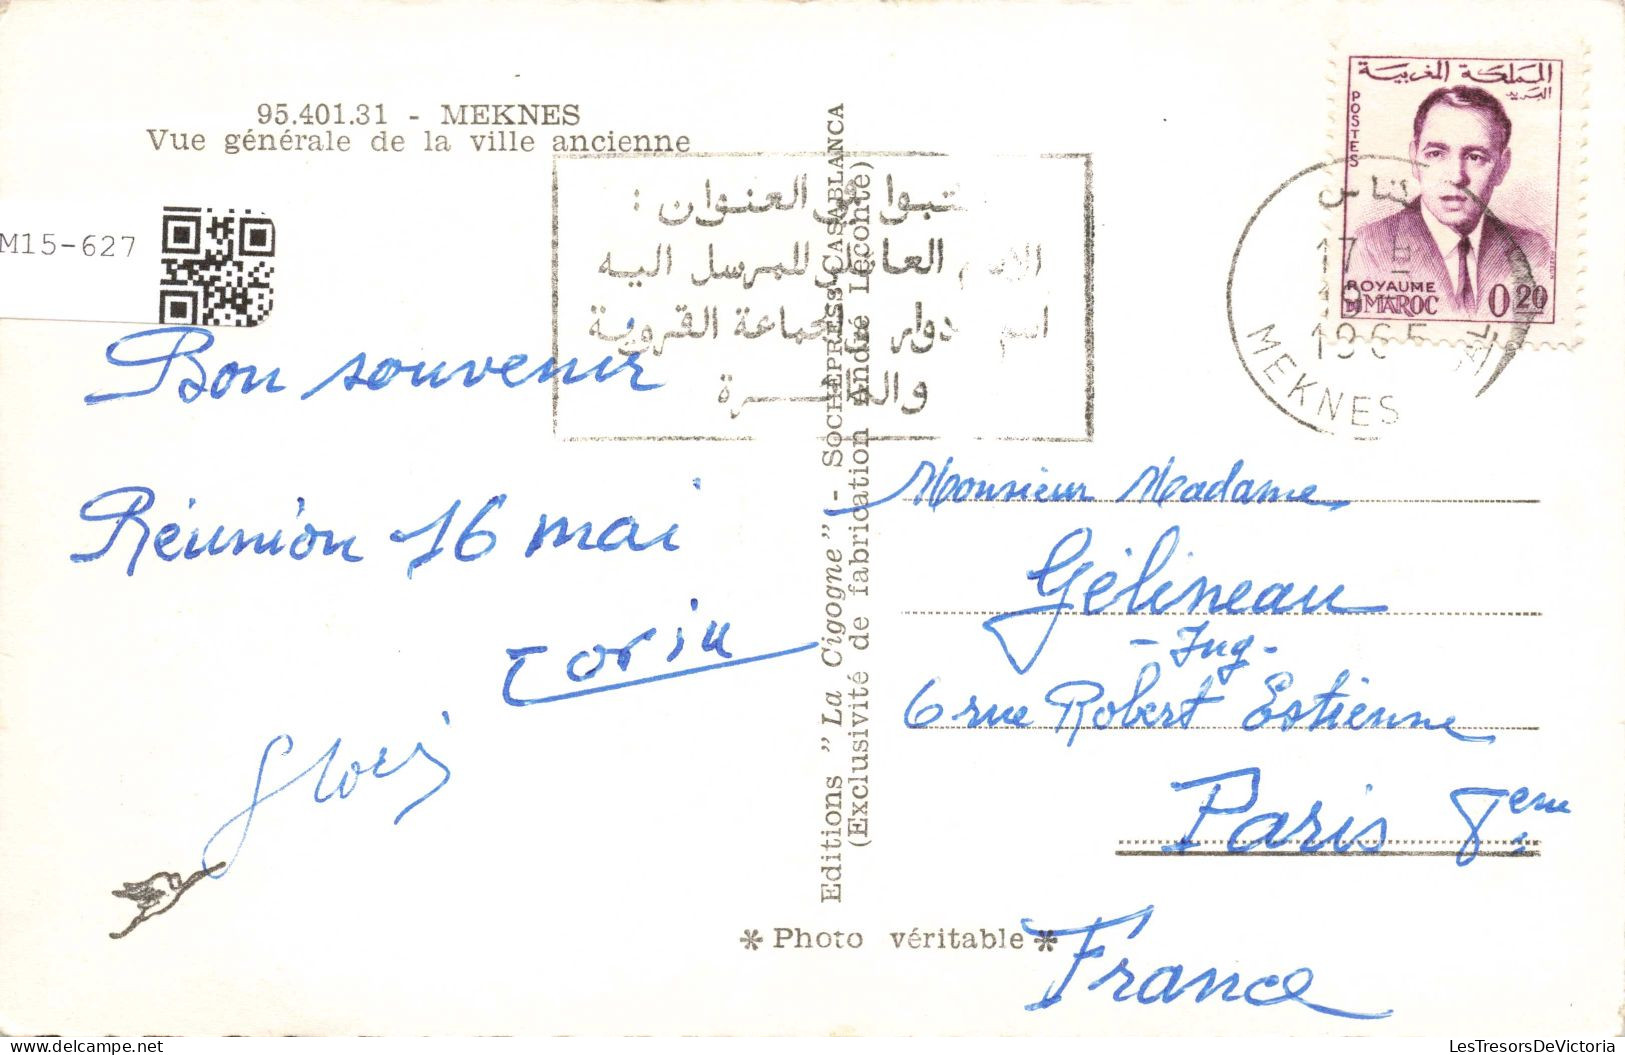 95.401.31 - MEKNES
Vue générale de la ville ancienne
M15-627
Bon souvenir
Réunion 16 mai
Editions " La Cigogne " - SOCHEPRESS-CASABLANCA
(Exclusivité de fabrication André Leconte)
✻ Photo véritable ✻
في العنوان :
العائلي للمرسل اليه
اسم الجماعة القروية
المملكة المغربية
البريد
POSTES
ROYAUME
DU MAROC
0,20
17
1965
MEKNES
Monsieur Madame
Gélineau
- Ing -
6 rue Robert Estienne
Paris 8eme
France
LesTresorsDeVictoria